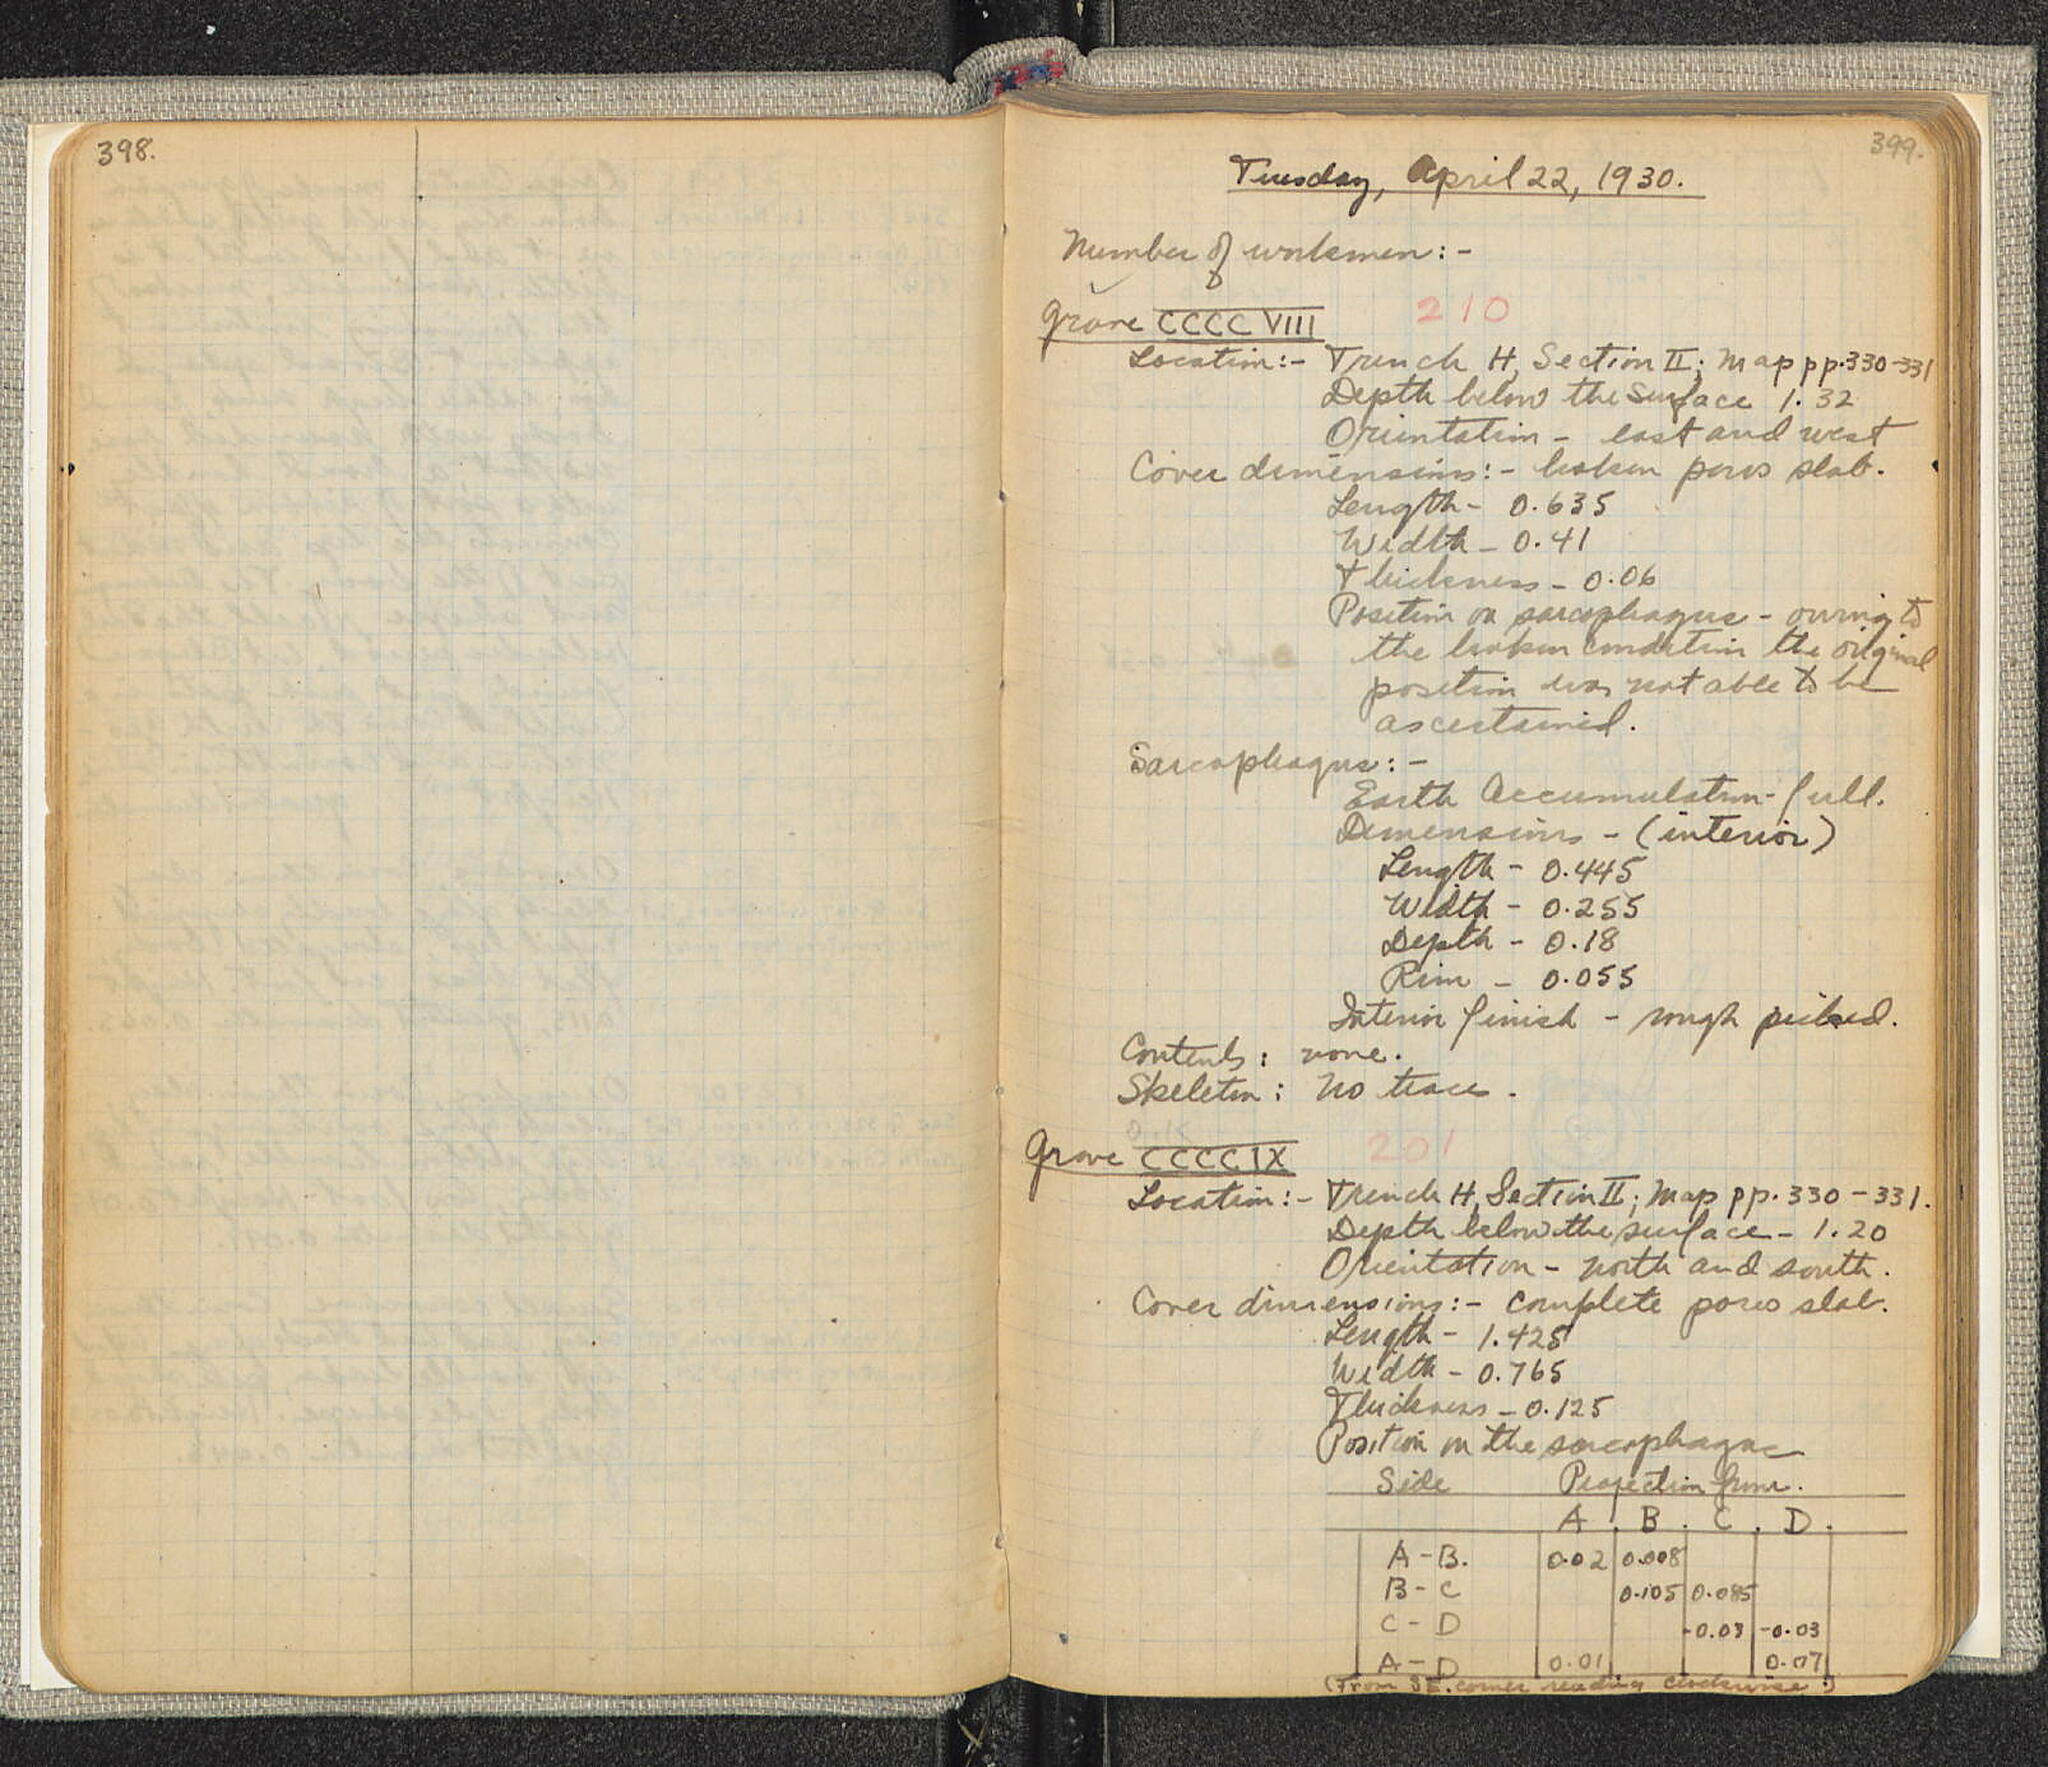 398.
399.
Tuesday, April 22, 1930.
Number of workmen:-
Grave CCCCVIII 210
Location:- Trench H, Section II; Map pp. 330-331
Depth below the surface 1.32
Orientation - east and west
Cover dimensions:- broken poros slab.
Length - 0.635
Width - 0.41
Thickness - 0.06
Position on sarcophagus - owing to
the broken condition the original
position was not able to be
ascertained.
Sarcophagus:-
Earth Accumulation - full.
Dimensions - (interior)
Length - 0.445
Width - 0.255
Depth - 0.18
Rim - 0.055
Interior finish - rough picked.
Contents: none.
Skeleton: No trace.
Grave CCCCIX 201
Location:- Trench H, Section II; Map pp. 330-331.
Depth below the surface - 1.20
Orientation - north and south.
Cover dimensions:- complete poros slab.
Length - 1.425
Width - 0.765
Thickness - 0.125
Position on the sarcophagus
Side Projection from.
A. B. C. D.
A-B. 0.02 0.008
B-C 0.105 0.085
C-D -0.03 -0.03
A-D 0.01 0.07
(From SE. corner reading clockwise.)